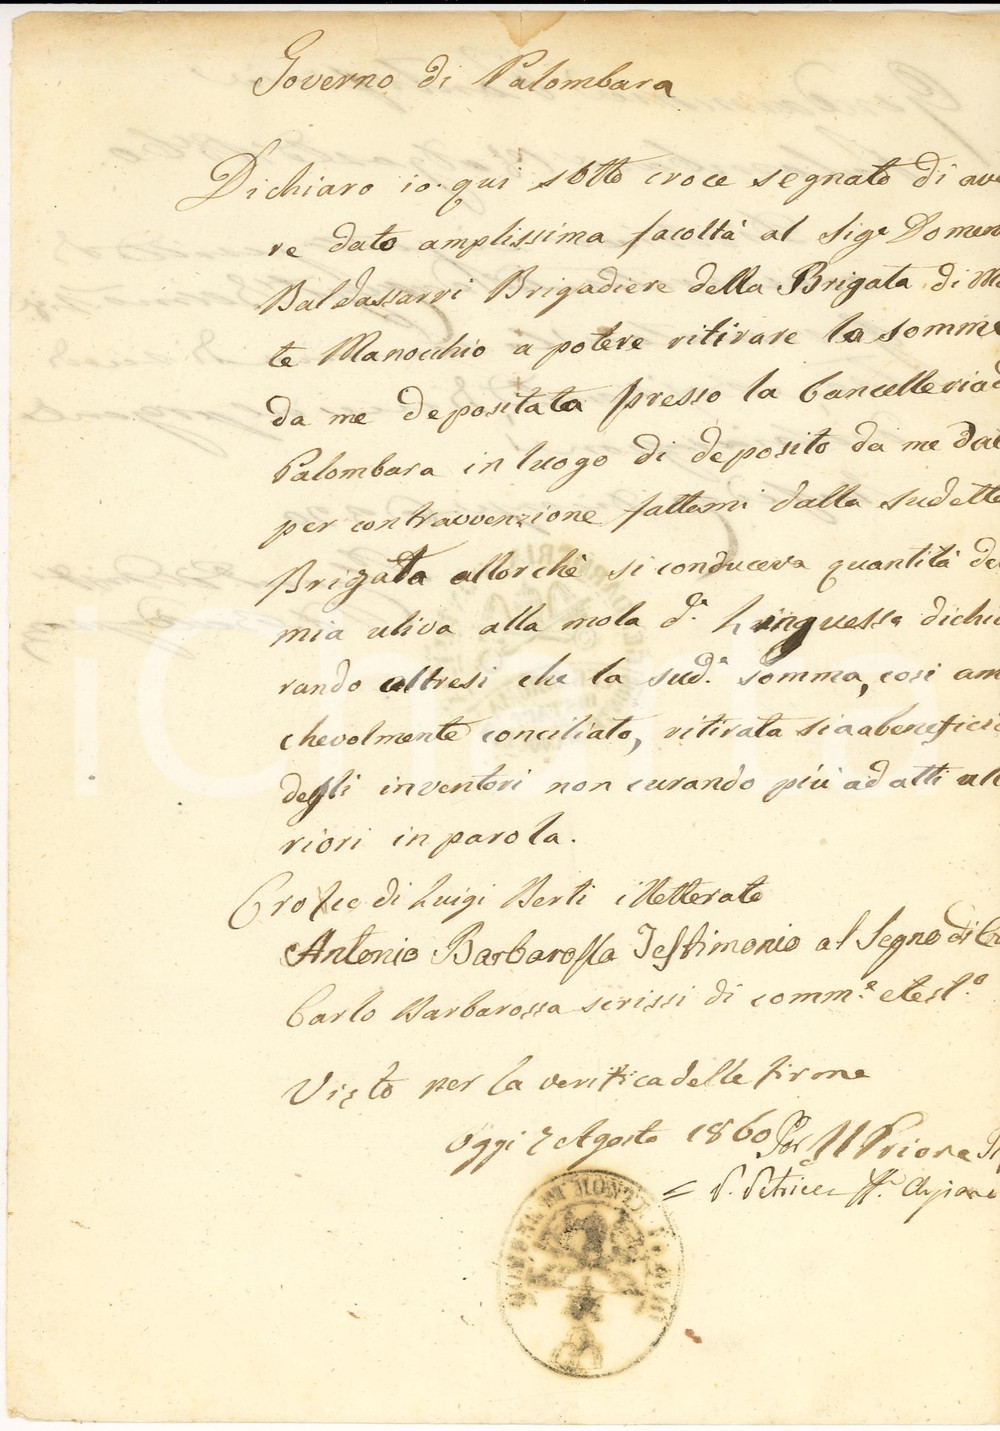 Governo di Palombara
Dichiaro io qui sotto croce segnato di ave
re dato amplissima facoltà al Sigr Domen
Baldassarri Brigadiere della Brigata di Mo
te Manocchio a potere ritirare la somma
da me depositata presso la Cancelleria d
Palombara in luogo di deposito da me dat
per contravvenzione fattami dalla sudetta
Brigata allorchè si conduceva quantità de
mia uliva alla mola da Linguessa dichia
rando altresi che la sudª somma, cosi am
chevolmente conciliato, ritirata sia a benefici
degli inventori non curando più ad atti ult
riori in parola.
Croce di Luigi Berti illetterato
Antonio Barbarossa Testimonio al Segno di C
Carlo Barbarossa scrissi di comme e testo
Visto per la verifica delle firme
Oggi 7 Agosto 1860 Per Il Priore
MONTE